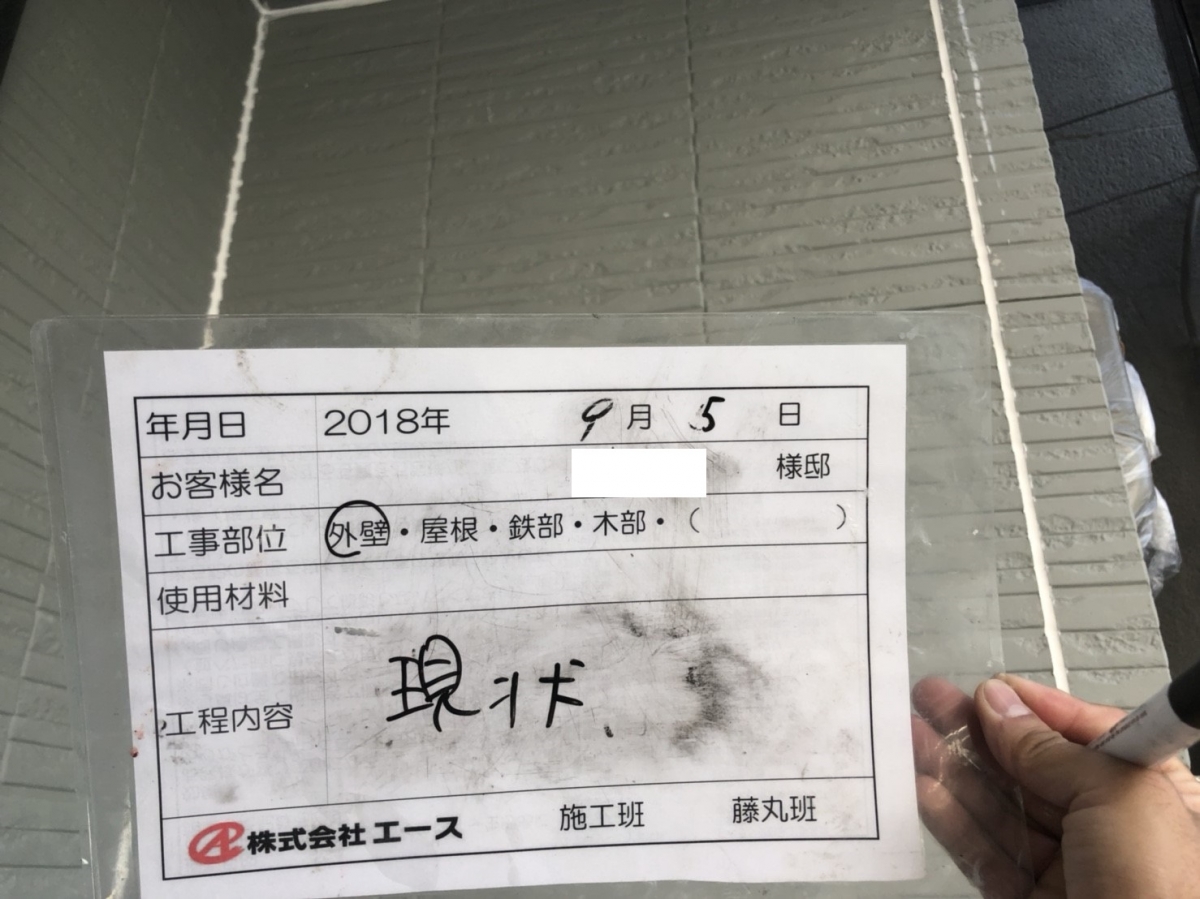 年月日 2018年 9月 5日
お客様名 様邸
工事部位 外壁・屋根・鉄部・木部・（ ）
使用材料
工程内容 現状
株式会社エース 施工班 藤丸班